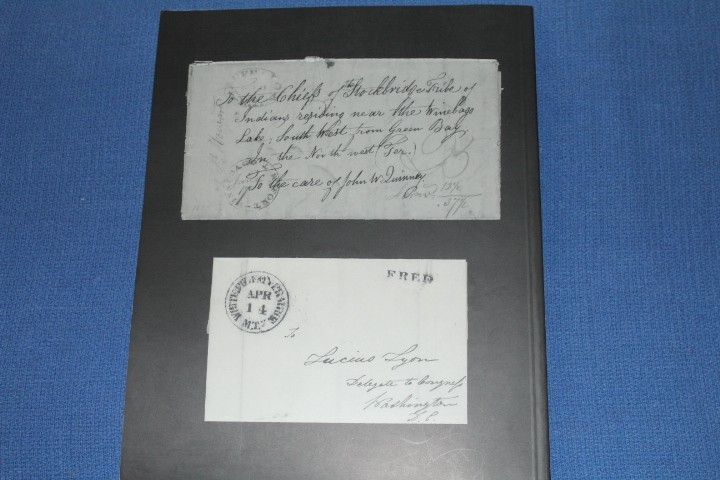 To the Chiefs of the Stockbridge Tribe of
Indians residing near the Winebago
Lake, South West from Green Bay
In the North west (Ter.)
To the care of John W. Quinney
FREE
APR
14
M.T.
To
Lucius Lyon
Delegate to Congress
Washington